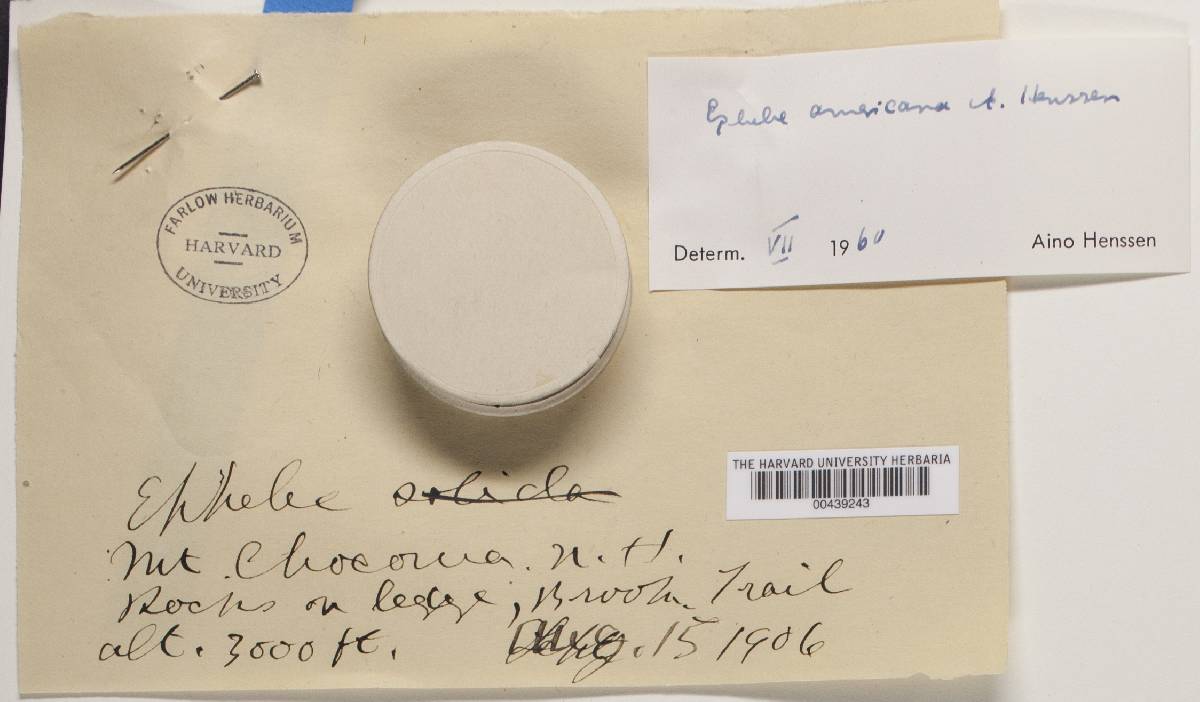 Ephebe americana A. Henssen
Determ. VII 1960 Aino Henssen
FARLOW HERBARIUM
HARVARD
UNIVERSITY
THE HARVARD UNIVERSITY HERBARIA
00439243
Ephebe solida
Mt. Chocorua. N.H.
Rocks on ledge, Brook Trail
alt. 3000 ft. Aug. 15 1906